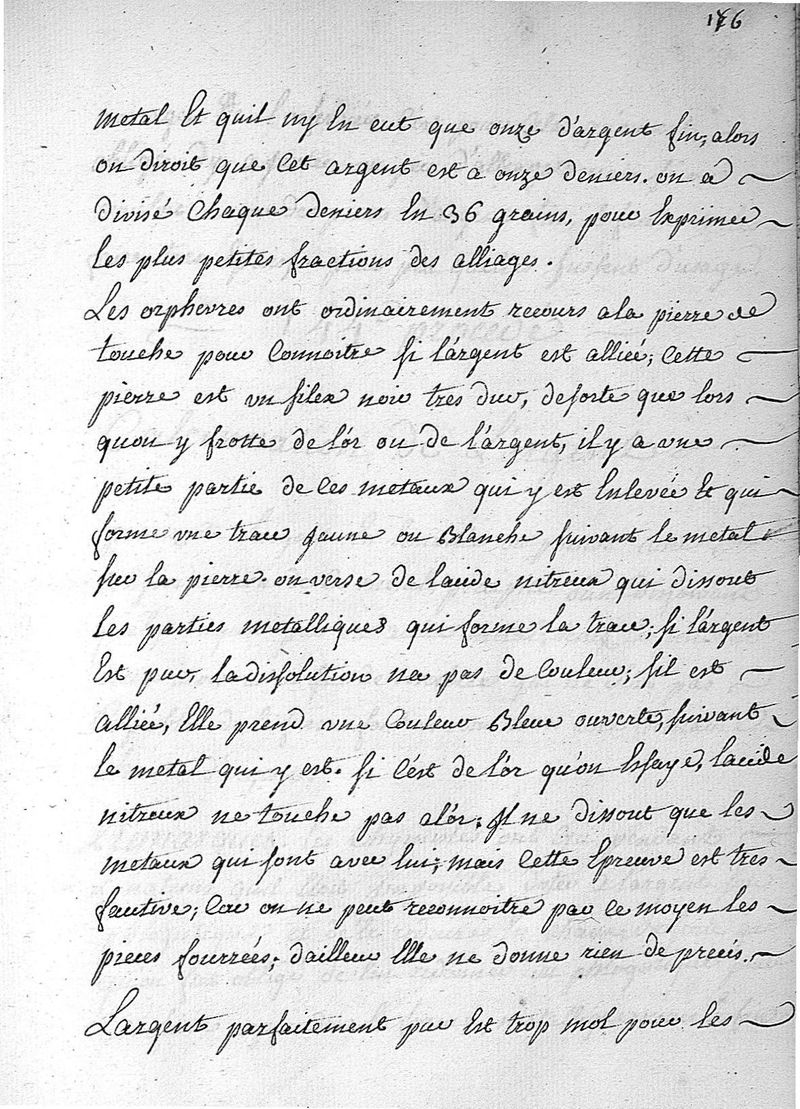 176
metal Et quil ny En eut que onze d'argent fin, alors
on diroit que Cet argent est a onze deniers. on a
divisé Chaque deniers En 36 grains, pour Exprimer
les plus petites fractions des alliages.
Les orphevres ont ordinairement recours a la pierre de
touche pour Connoitre si l'argent est alliée; Cette
pierre est un silex noir tres dur, desorte que lors
quon y frotte de l'or ou de l'argent, il y a une
petite partie de Ces metaux qui y est Enlevée Et qui
forme une trace jaune ou Blanche suivant le metal
sur la pierre. on verse de lacide nitreux qui dissout
les parties metalliques qui forme la trace; si l'argent
Est pur, la dissolution na pas de Couleur; sil est
alliée, Elle prend une Couleur Bleue ouverte, suivant
le metal qui y est. si C'est de l'or qu'on Essaye, lacide
nitreux ne touche pas alor; Il ne dissout que les
metaux qui sont avec lui; mais Cette Epreuve est tres
fautive; Car on ne peut reconnoitre par Ce moyen les
pieces fourrées; dailleur Elle ne donne rien de precis.
Largent parfaitement pur Est trop mol pour les